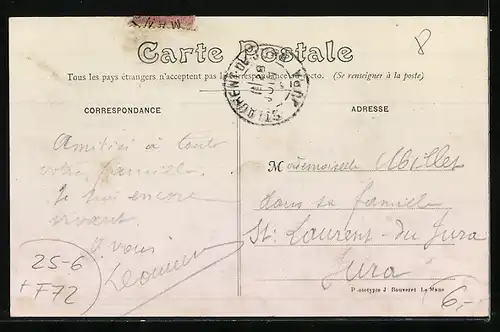 Carte Postale
8
Tous les pays étrangers n'acceptent pas la correspondance au recto. (Se renseigner à la poste)
ST LAURENT-DU-JURA
CORRESPONDANCE
ADRESSE
Amitiés à toute
votre famille.
Je suis encore
vivant.
A vous
Mademoiselle Millet
dans sa famille
St. Laurent-du Jura
Jura
25-6
+ F72
Phototypie J. Bouveret Le Mans
6,-